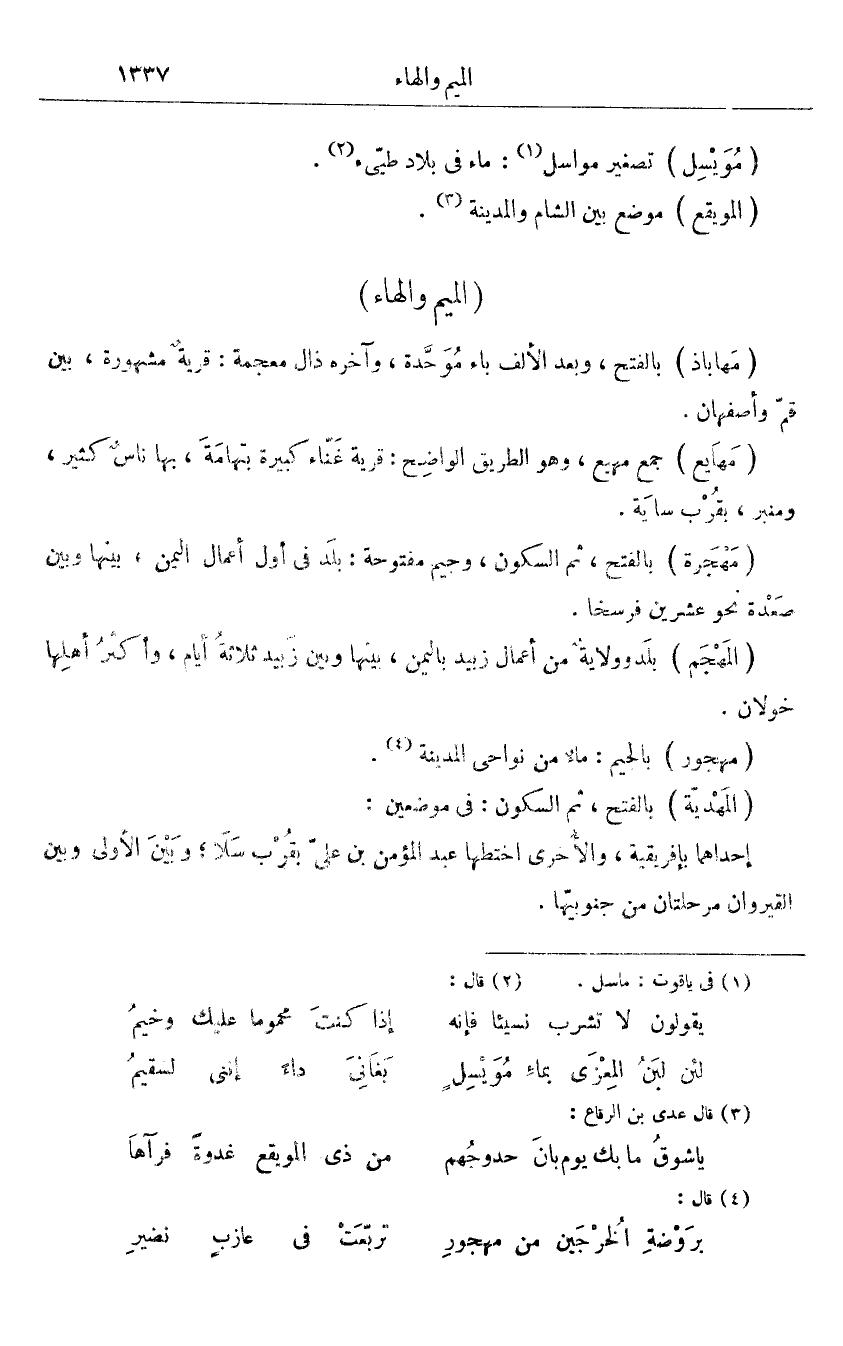 الميم والهاء ١٣٣٧
( مُوَيْسِل ) تصغير مواسل(١) : ماء فى بلاد طيّىء(٢) .
( المويقع ) موضع بين الشام والمدينة (٣) .
( الميم والهاء )
( مَهاباذ ) بالفتح ، وبعد الألف باء مُوَحَّدة ، وآخره ذال معجمة : قريةٌ مشهورة ، بين
قمّ وأصفهان .
( مَهايع ) جمع مهيع ، وهو الطريق الواضِح : قرية غَنّاء كبيرة بتهامَةَ ، بها ناسٌ كثير ،
ومنبر ، بقُرْب سايَة .
( مَهْجَرة ) بالفتح ، ثم السكون ، وجيم مفتوحة : بلَد فى أول أعمال اليمن ، بينها وبين
صَعْدة نحو عشرين فرسخا .
( المَهْجَم ) بلَد وولايةٌ من أعمال زبيد باليمن ، بينها وبين زَبيد ثلاثةُ أيام ، وأكثرُ أهلِها
خولان .
( مهجور ) بالجيم : ماء من نواحى المدينة (٤) .
( المَهْديّة ) بالفتح ، ثم السكون : فى موضعين :
إحداهما بإفريقية ، والأُخرى اختطها عبد المؤمن بن علىّ بقُرْب سَلَا ؛ وَبَيْنَ الأولى وبين
القيروان مرحلتان من جنوبيّها .
(١) فى ياقوت : ماسل . (٢) قال :
يقولون لا تشرب نسيئا فإنه إذا كنتَ محموما عليك وخيمُ
لئن لبَنُ المِعْزَى بماءِ مُوَيْسِلٍ بَغَانِىَ داءً إننى لسقيمُ
(٣) قال عدى بن الرقاع :
ياشوقُ مابك يوم بانَ حدوجُهم من ذى المويقع غدوةً فرآهَا
(٤) قال :
برَوْضةِ الخرْجَين من مهجورِ تربّعَتْ فى عازبٍ نضيرِ